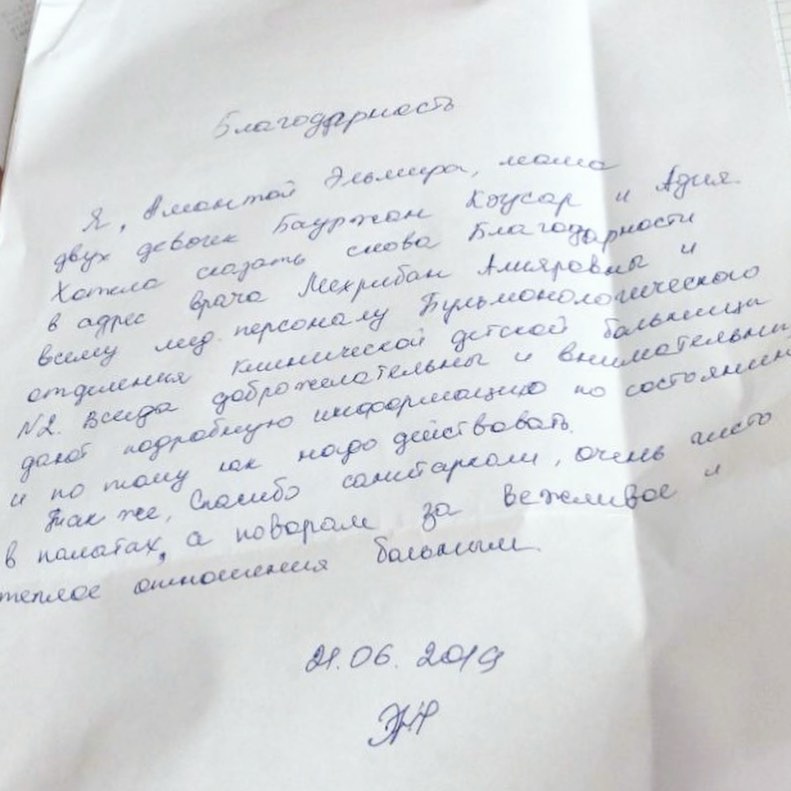 Благодарность
Я, Амантай Эльмира, мама
двух девочек Бауржан Коусар и Адия.
Хотела сказать снова Благодарности
в адрес врача Мехрибан Амияровны и
всему мед. персоналу Бульмонологического
отделения клинической детской больницы
N2. Всегда доброжелательны и внимательны,
дают подробную информацию по состоянии
и по тому как надо действовать.
Так же, Спасибо санитаркам, очень чисто
в палатах, а поварам за вежливое и
теплое отношения больным.
21.06. 2019